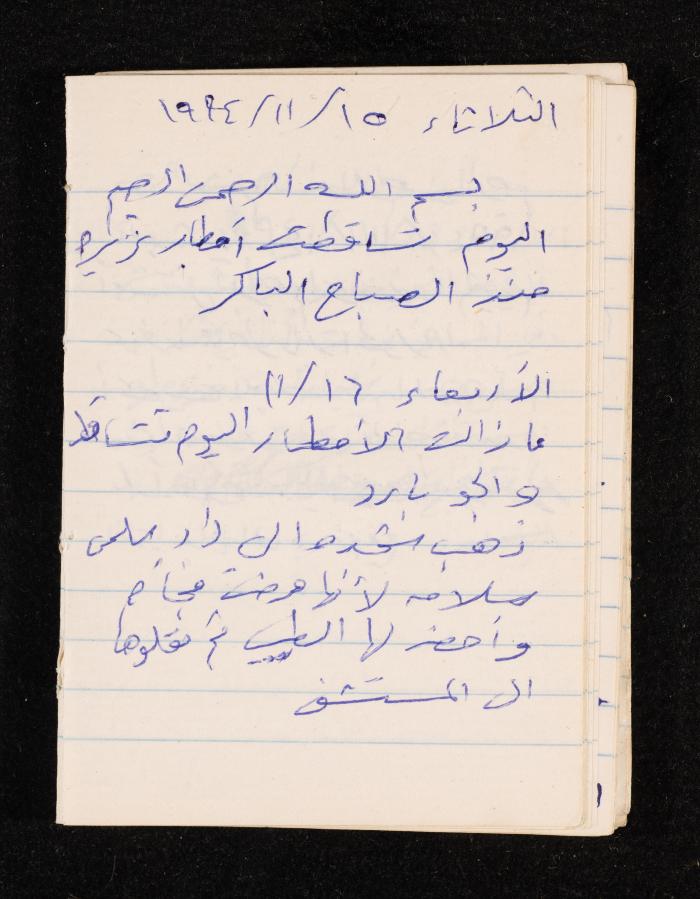 الثلاثاء ١٩٩٤/١١/١٥
بسم الله الرحمن الرحيم
اليوم تساقطت أمطار غزيره
منذ الصباح الباكر
الأربعاء ١١/١٦
ما زالت الأمطار اليوم تتساقط
والجو بارد
ذهب الى دار سلمى
سلامه لأنها مرضت
وأحضر لها الطبيب ثم نقلوها
الى المستشفى